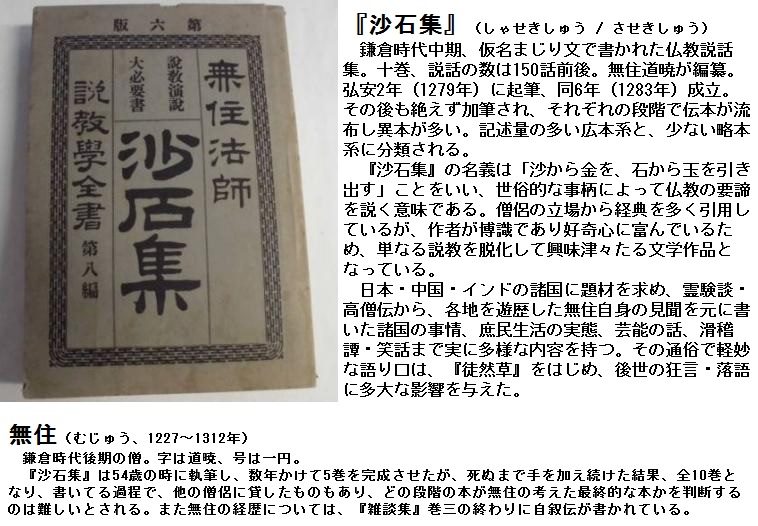 第六版
無住法師
說教演說
大必要書
沙石集
説教學全書 第八編
『沙石集』（しゃせきしゅう / させきしゅう）
鎌倉時代中期、仮名まじり文で書かれた仏教説話
集。十巻、説話の数は150話前後。無住道暁が編纂。
弘安2年（1279年）に起筆、同6年（1283年）成立。
その後も絶えず加筆され、それぞれの段階で伝本が流
布し異本が多い。記述量の多い広本系と、少ない略本
系に分類される。
『沙石集』の名義は「沙から金を、石から玉を引き
出す」ことをいい、世俗的な事柄によって仏教の要諦
を説く意味である。僧侶の立場から経典を多く引用し
ているが、作者が博識であり好奇心に富んでいるた
め、単なる説教を脱化して興味津々たる文学作品と
なっている。
日本・中国・インドの諸国に題材を求め、霊験談・
高僧伝から、各地を遊歴した無住自身の見聞を元に書
いた諸国の事情、庶民生活の実態、芸能の話、滑稽
譚・笑話まで実に多様な内容を持つ。その通俗で軽妙
な語り口は、『徒然草』をはじめ、後世の狂言・落語
に多大な影響を与えた。
無住（むじゅう、1227～1312年）
鎌倉時代後期の僧。字は道暁、号は一円。
『沙石集』は54歳の時に執筆し、数年かけて5巻を完成させたが、死ぬまで手を加え続けた結果、全10巻と
なり、書いてる過程で、他の僧侶に貸したものもあり、どの段階の本が無住の考えた最終的な本かを判断する
のは難しいとされる。また無住の経歴については、『雑談集』巻三の終わりに自叙伝が書かれている。